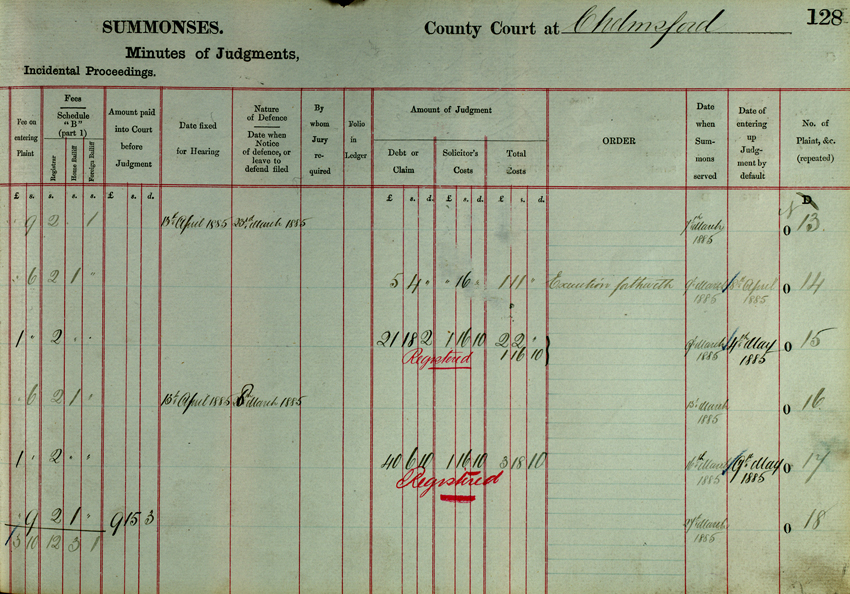 128
SUMMONSES.
County Court at Chelmsford
Minutes of Judgments,
Incidental Proceedings.
Fee on entering Plaint
Fees
Schedule "B" (part 1)
Registrar
Home Bailiff
Foreign Bailiff
Amount paid into Court before Judgment
Date fixed for Hearing
Nature of Defence
Date when Notice of defence, or leave to defend filed
By whom Jury re-quired
Folio in Ledger
Amount of Judgment
Debt or Claim
Solicitor's Costs
Total Costs
ORDER
Date when Sum-mons served
Date of entering up Judg-ment by default
No. of Plaint, &c. (repeated)
£ s. s. s. s. £ s. d. £ s. d. £ s. d. £ s. d.
D
9 2 " 1 13th April 1885 March 1885 March 1885 0 13
" 6 2 1 " 5 4 " " 16 " 1 11 " Execution forthwith March 1885 April 1885 0 14
1 " 2 " " 21 18 2 1 16 10 2 2 " March 1885 May 1885 0 15
Registered 1 16 10
" 6 2 1 " 13th April 1885 March 1885 March 1885 0 16
1 " 2 " " 40 6 10 1 16 10 3 18 10 March 1885 May 1885 0 17
Registered
" 9 2 1 " 9 15 3 March 1885 0 18
10 12 3 1